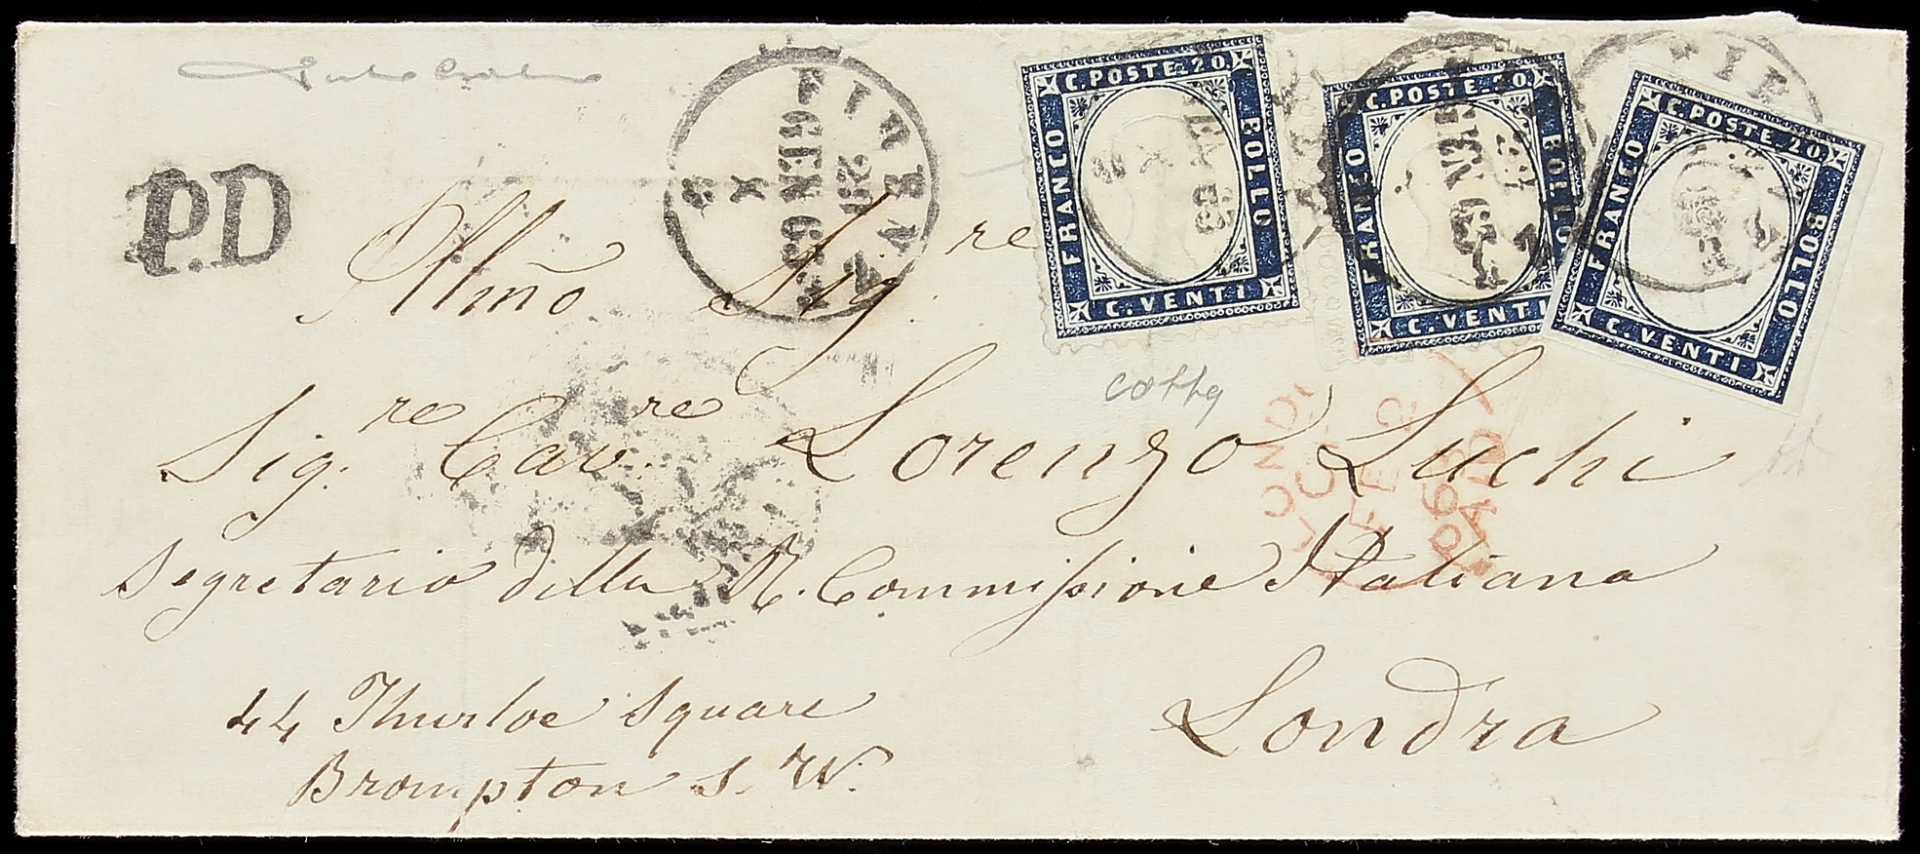 P.D
FIRENZE
29
GEN 63
C. POSTE. 20.
FRANCO
BOLLO
C. VENTI
C. POSTE. 20.
FRANCO
BOLLO
C. VENTI
C. POSTE. 20.
FRANCO
BOLLO
C. VENTI
Illmo Sig.re
Sig.re Cav.re Lorenzo Luchi
Segretario della R. Commissione Italiana
44 Thurloe Square
Brompton S. W.
Londra
FE 2
63
PAID